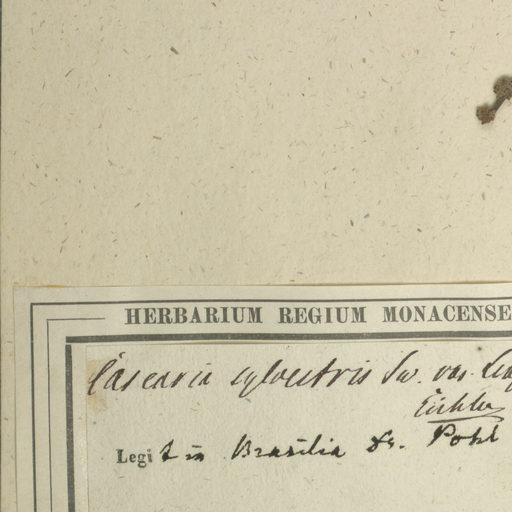 HERBARIUM REGIUM MONACENSE
Casearia sylvestris Sw. var.
Eichler
Legit in Brasilia Dr. Pohl